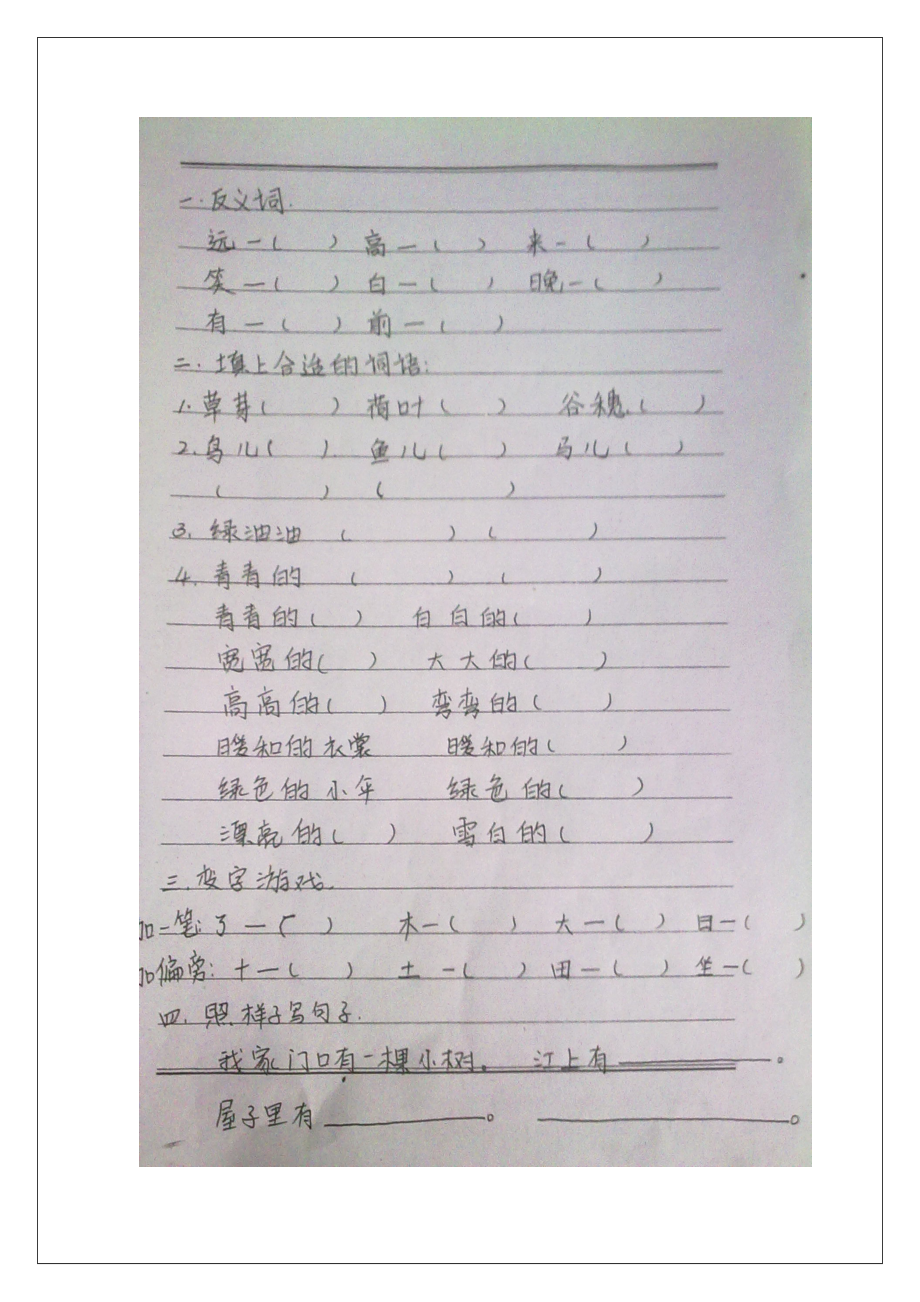 一.反义词.
远—(  ) 高—(  ) 来—(  )
笑—(  ) 白—(  ) 晚—(  )
有—(  ) 前—(  )
二.填上合适的词语:
1.草芽(  ) 荷叶(  ) 谷穗(  )
2.鸟儿(  ) 鱼儿(  ) 马儿(  )
(  ) (  )
3.绿油油 (  ) (  )
4.青青的 (  ) (  )
青青的(  ) 白白的(  )
宽宽的(  ) 大大的(  )
高高的(  ) 弯弯的(  )
暖和的衣裳 暖和的(  )
绿色的小伞 绿色的(  )
漂亮的(  ) 雪白的(  )
三.变字游戏.
加一笔:了—(  ) 木—(  ) 大—(  ) 日—(  )
加偏旁:十—(  ) 土—(  ) 田—(  ) 坐—(  )
四.照样子写句子.
我家门口有一棵小树。 江上有______。
屋子里有______。 ______。